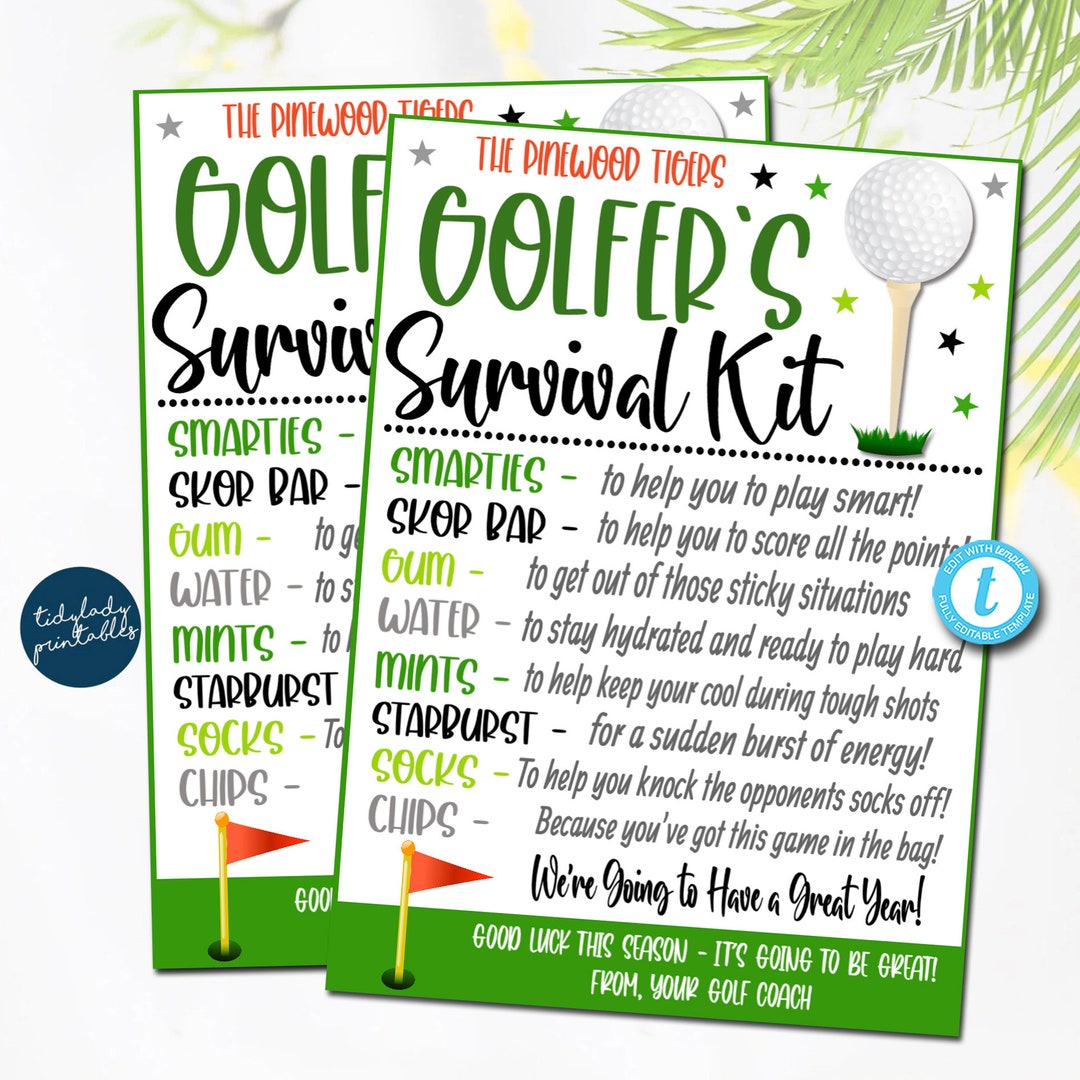 THE PINEWOOD TIGERS
GOLF
Surviv
SMARTIES -
SKOR BAR -
GUM - to ge
WATER - to s
MINTS - to
STARBURST
SOCKS - To
CHIPS -
GOO
THE PINEWOOD TIGERS
GOLFER`S
Survival Kit
SMARTIES - to help you to play smart!
SKOR BAR - to help you to score all the points!
GUM - to get out of those sticky situations
WATER - to stay hydrated and ready to play hard
MINTS - to help keep your cool during tough shots
STARBURST - for a sudden burst of energy!
SOCKS - To help you knock the opponents socks off!
CHIPS - Because you've got this game in the bag!
We're Going to Have a Great Year!
GOOD LUCK THIS SEASON - IT'S GOING TO BE GREAT!
FROM, YOUR GOLF COACH
tidylady
printables
EDIT WITH templett
t
FULLY EDITABLE TEMPLATE